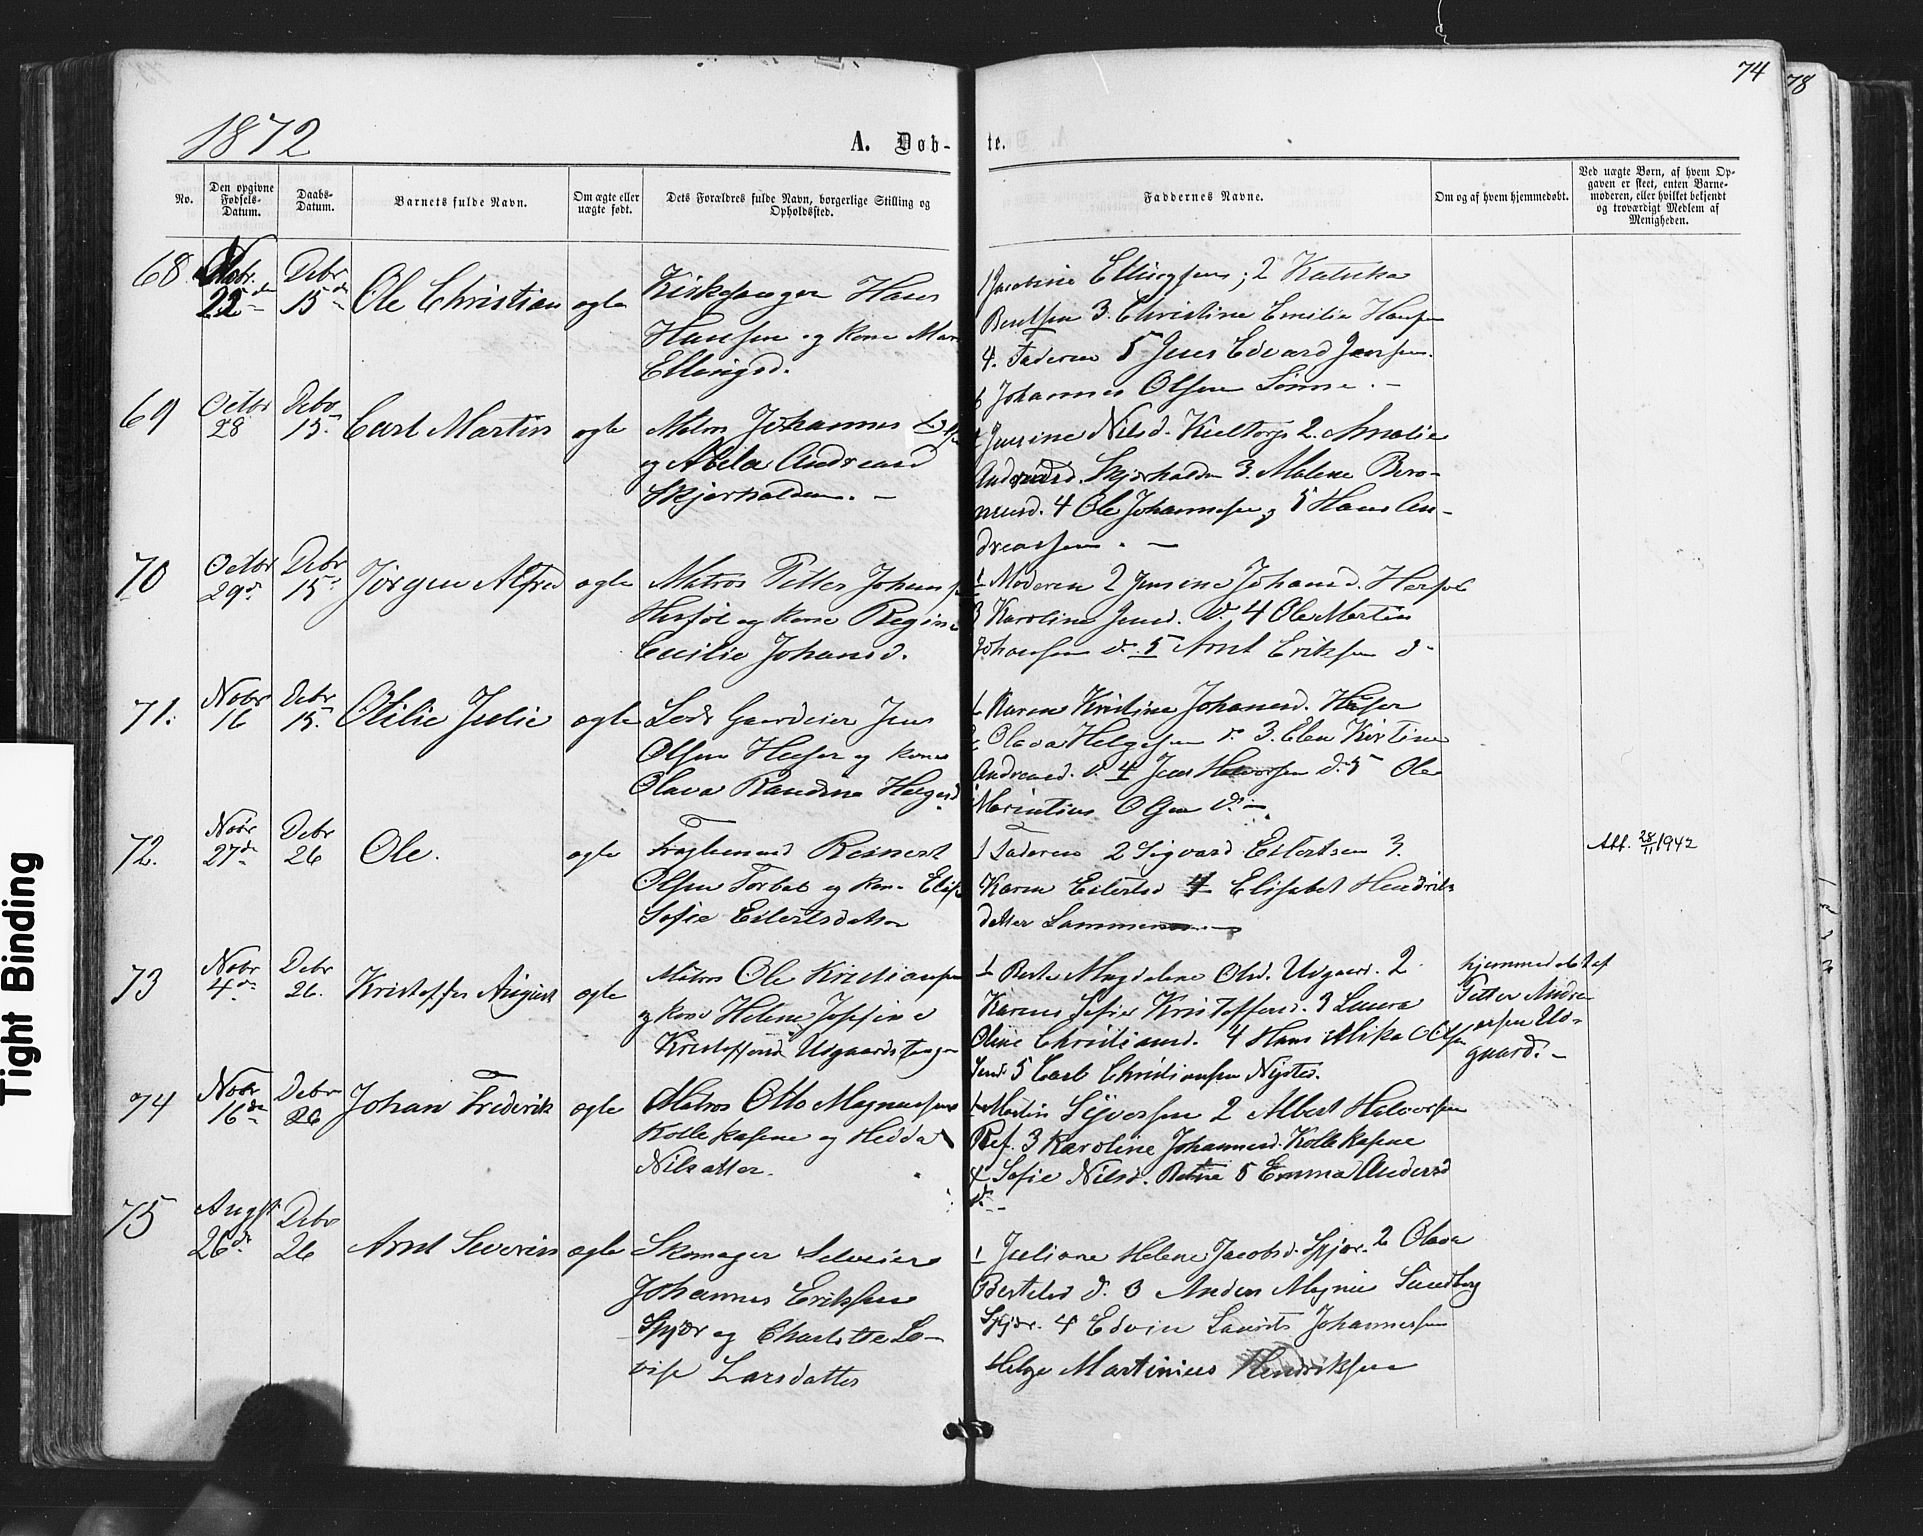 74
78
1872
A. Døb-
te.
No.
Den opgivne Fødsels-Datum.
Daabs-Datum.
Barnets fulde Navn.
Om ægte eller uægte født.
Dets Forældres fulde Navn, borgerlige Stilling og Opholdssted.
Faddernes Navne.
Om og af hvem hjemmedøbt.
Ved uægte Børn, af hvem Opgaven er skeet, enten Barnemoderen, eller hvilket bekjendt og troværdigt Medlem af Menigheden.
68
Nobr 22de
Debr 15de
Ole Christian
ægte
Kirkesanger Hans
Hansen og kone Mar
Ellingsd.
1 Jacobine Ellingsen; 2 Katrika
Bentsen 3. Christine Emilie Hansen
4. Faderen 5 Jens Edvard Jensen.
6 Johannes Olsen
69
Octbr 28
Debr 15
Carl Martin
ægte
Matros Johannes
og Abela Andreasd
Skjærhalden. –
Nilsd. 2. Amalie
Andreasd. Skjærhalden 3. Malene
4 Ole Johannesen 5 Hans An-
dreassen. –
70
Octbr 29de
Debr 15
Jørgen Alfred
ægte
Matros Petter Johans
Herføl og kone Regine
Cecilie Johansd.
1 Moderen 2 Jensine Johansd. Herføl
3 Karoline Jensd. d. 4 Ole Martin
Johansen d. 5 Arnt Eriksen d
71.
Nobr 16
Debr 15
Otilie Julie
ægte
Lods Gaardeier Jens
Olsen og kone
Olava Randine Helgesd
1 Karen Kristine Johannesd.
2 Olava Helgesen d. 3. Elen Kirstine
Andreasd. d. 4 Jens Halvorsen d. 5 Ole
Marentius Olsen d. –
72.
Nobr 27de
Debr 26
Ole.
ægte
Fragtemand Reinert
Olsen og kone Elise
Sofie Eilertsdatter
1 Faderen 2 Sigvard Eilertsen 3.
Karen Eilertsd 4 Elisabet Hendriks
datter Sammen
Att. 28/11 1942
73
Nobr 4de
Debr 26.
Kristoffer August
ægte
Matros Ole Kristiansen
og kone Helene Josefine
Kristoffersd Udgaardstangen
1 Berte Magdalene Olsd. Udgaard. 2
Karen Sofie Kristoffersd. 3 Laura
Oline Christiansd. 4 Hans Mika Olsen
5 Carl Christiansen Nysted.
hjemmedøbt af
Petter Andre
assen Ud-
gaard. –
74
Nobr 16de
Debr 26
Johan Frederik
ægte
Matros Otto Magnussen
Kollekasene og Hedda
Nilsdatter.
1 Martin Syversen 2 Albert Halvorsen
Ref. 3 Karoline Johannesd. Kollekasene
4 Sofie Nilsd. 5 Emma Andersd
d. –
75
Augst 26de
Debr 26
Arnt Severin
ægte
Skomager Selveier
Johannes Eriksen
Spjær og Charlotte Lo-
vise Larsdatter
1 Juliane Helene Jacobsd. Spjær. 2 Olava
Bertelsd d. 3 Anders Magnus Sundberg
Spjær. 4 Edvin Laurits Johannesen
Helge Martinius Hendriksen
Tight Binding